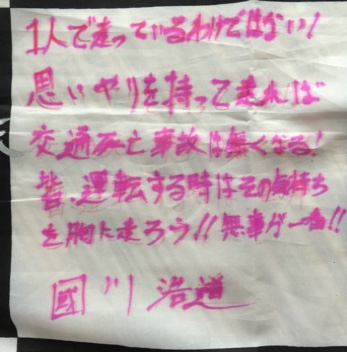 1人で走っているわけではない!
思いやりを持って走れば
交通死亡事故は無くなる!
皆、運転する時はその気持ち
を胸に走ろう!!無事が一番!!
國川浩道